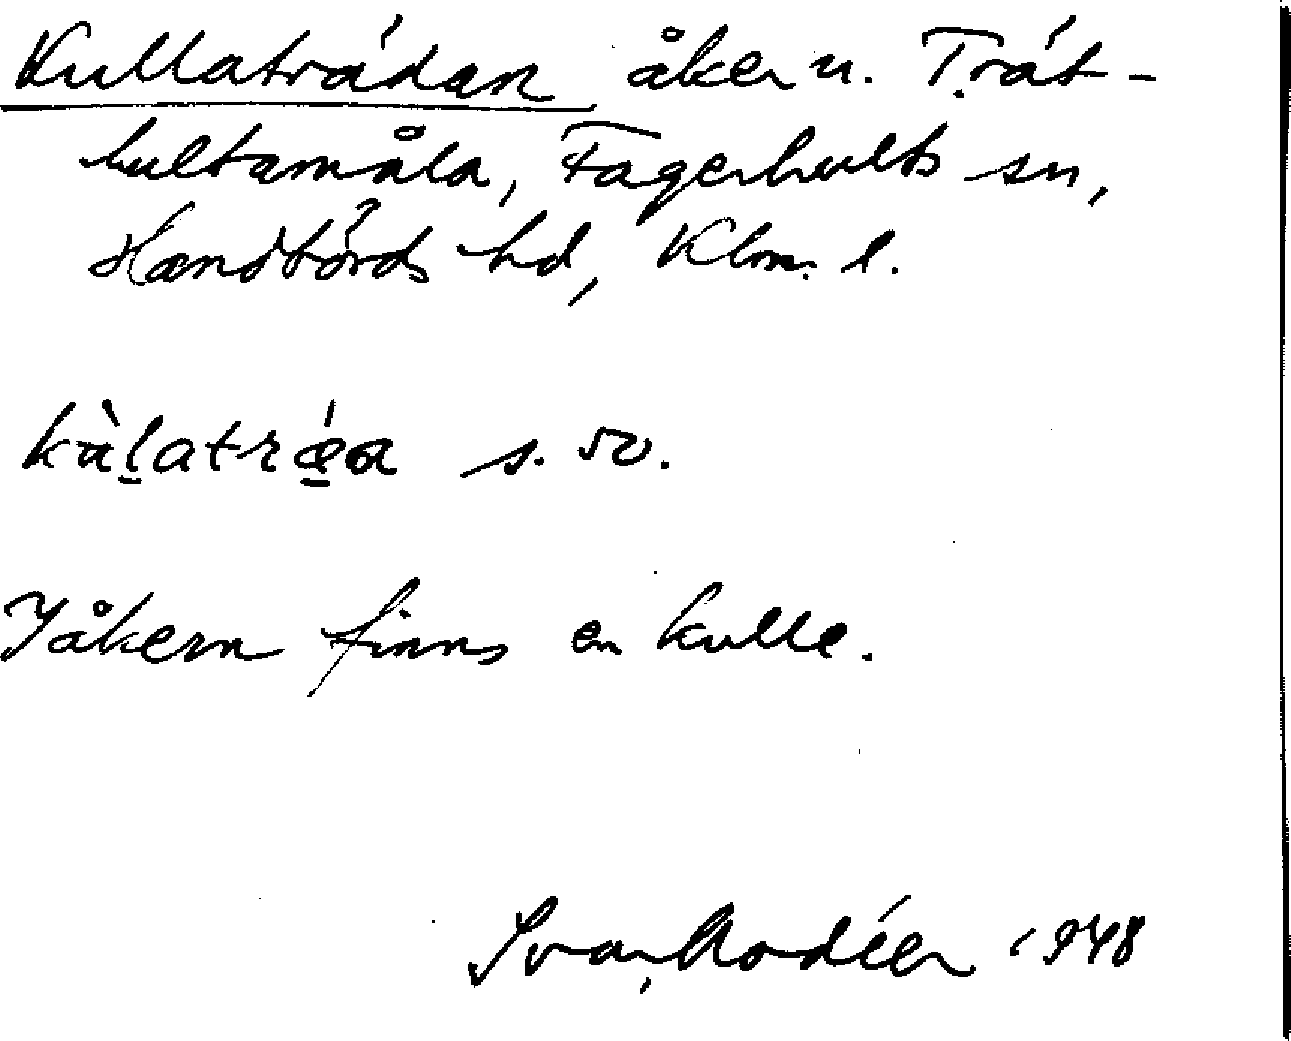 Kullaträdan åker u. Trät-
hultamåla, Fagerhults sn,
Handbörds hd, Klm. l.
kùḷatrǽ̱a s. 50.
I åkern finns en kulle.
Ivar Modéer 1948